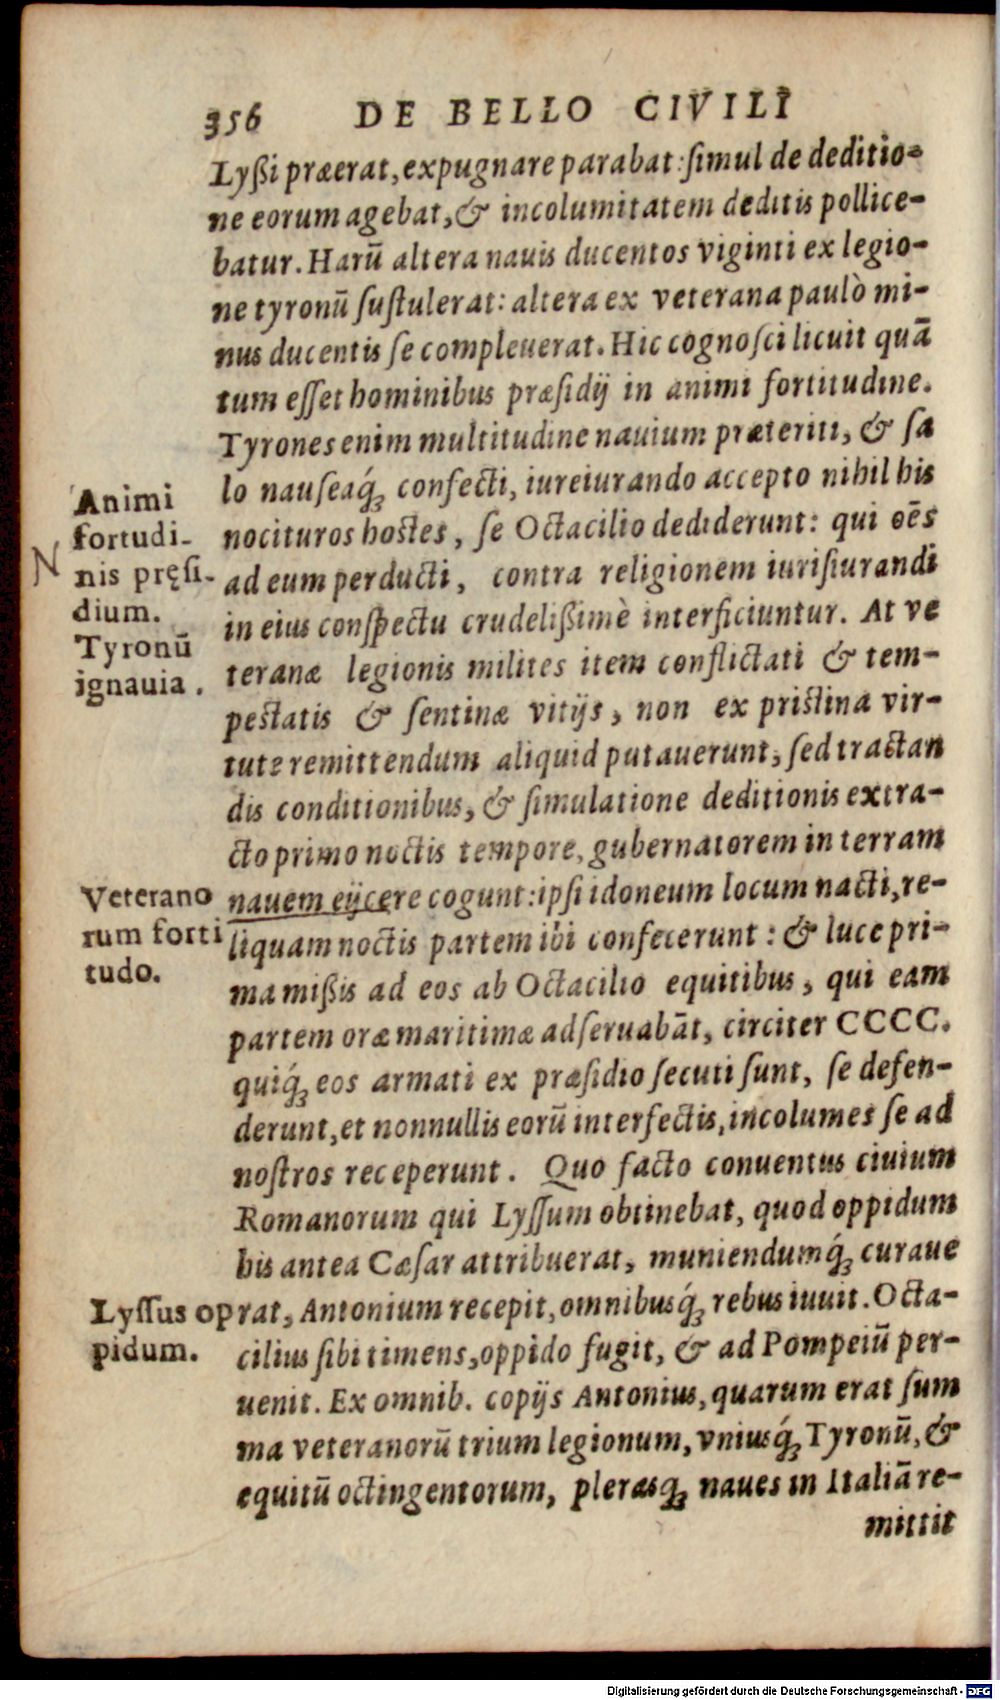 356 DE BELLO CIVILI
Lyßi præerat, expugnare parabat: ſimul de deditio-
ne eorum agebat, & incolumitatem deditis pollice-
batur. Harũ altera nauis ducentos viginti ex legio-
ne tyronũ ſuſtulerat: altera ex veterana paulò mi-
nus ducentis ſe compleuerat. Hic cognoſci licuit quã
tum eſſet hominibus præſidij in animi fortitudine.
Tyrones enim multitudine nauium præteriti, & ſa
lo nauſeaq́ꝫ confecti, iureiurando accepto nihil his
nocituros hoſtes, ſe Octacilio dediderunt: qui oẽs
ad eum perducti, contra religionem iurisiurandi
in eius conſpectu crudelißimè interficiuntur. At ve
teranæ legionis milites item conflictati & tem-
peſtatis & ſentinæ vitijs, non ex priſtina vir-
tute remittendum aliquid putauerunt, ſed tractan
dis conditionibus, & ſimulatione deditionis extra-
cto primo noctis tempore, gubernatorem in terram
nauem eijcere cogunt: ipſi idoneum locum nacti, re-
liquam noctis partem ibi confecerunt: & luce pri-
ma mißis ad eos ab Octacilio equitibus, qui eam
partem oræ maritimæ adſeruabãt, circiter CCCC.
quiq́ꝫ eos armati ex præſidio ſecuti ſunt, ſe defen-
derunt, et nonnullis eorũ interfectis, incolumes ſe ad
noſtros receperunt. Quo facto conuentus ciuium
Romanorum qui Lyſſum obtinebat, quod oppidum
his antea Cæſar attribuerat, muniendumq́ꝫ curaue
rat, Antonium recepit, omnibusq́ꝫ rebus iuuit. Octa-
cilius ſibi timens, oppido fugit, & ad Pompeiũ per-
uenit. Ex omnib. copijs Antonius, quarum erat ſum
ma veteranorũ trium legionum, vniusq́ꝫ Tyronũ, &
equitũ octingentorum, plerasqꝫ naues in Italiã re-
mittit
Animi
fortudi-
nis pręſi-
dium.
Tyronũ
ignauia.
N
Veterano
rum forti
tudo.
Lyſſus op
pidum.
Digitalisierung gefördert durch die Deutsche Forschungsgemeinschaft - DFG